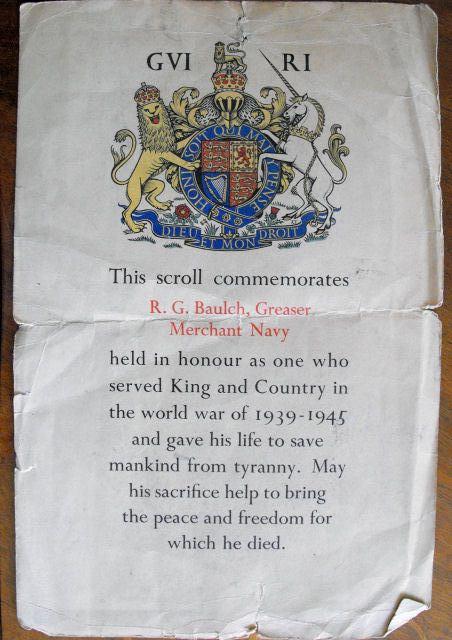 GVI RI
HONI SOIT QUI MAL Y PENSE
DIEU ET MON DROIT
This scroll commemorates
R. G. Baulch, Greaser
Merchant Navy
held in honour as one who
served King and Country in
the world war of 1939-1945
and gave his life to save
mankind from tyranny. May
his sacrifice help to bring
the peace and freedom for
which he died.